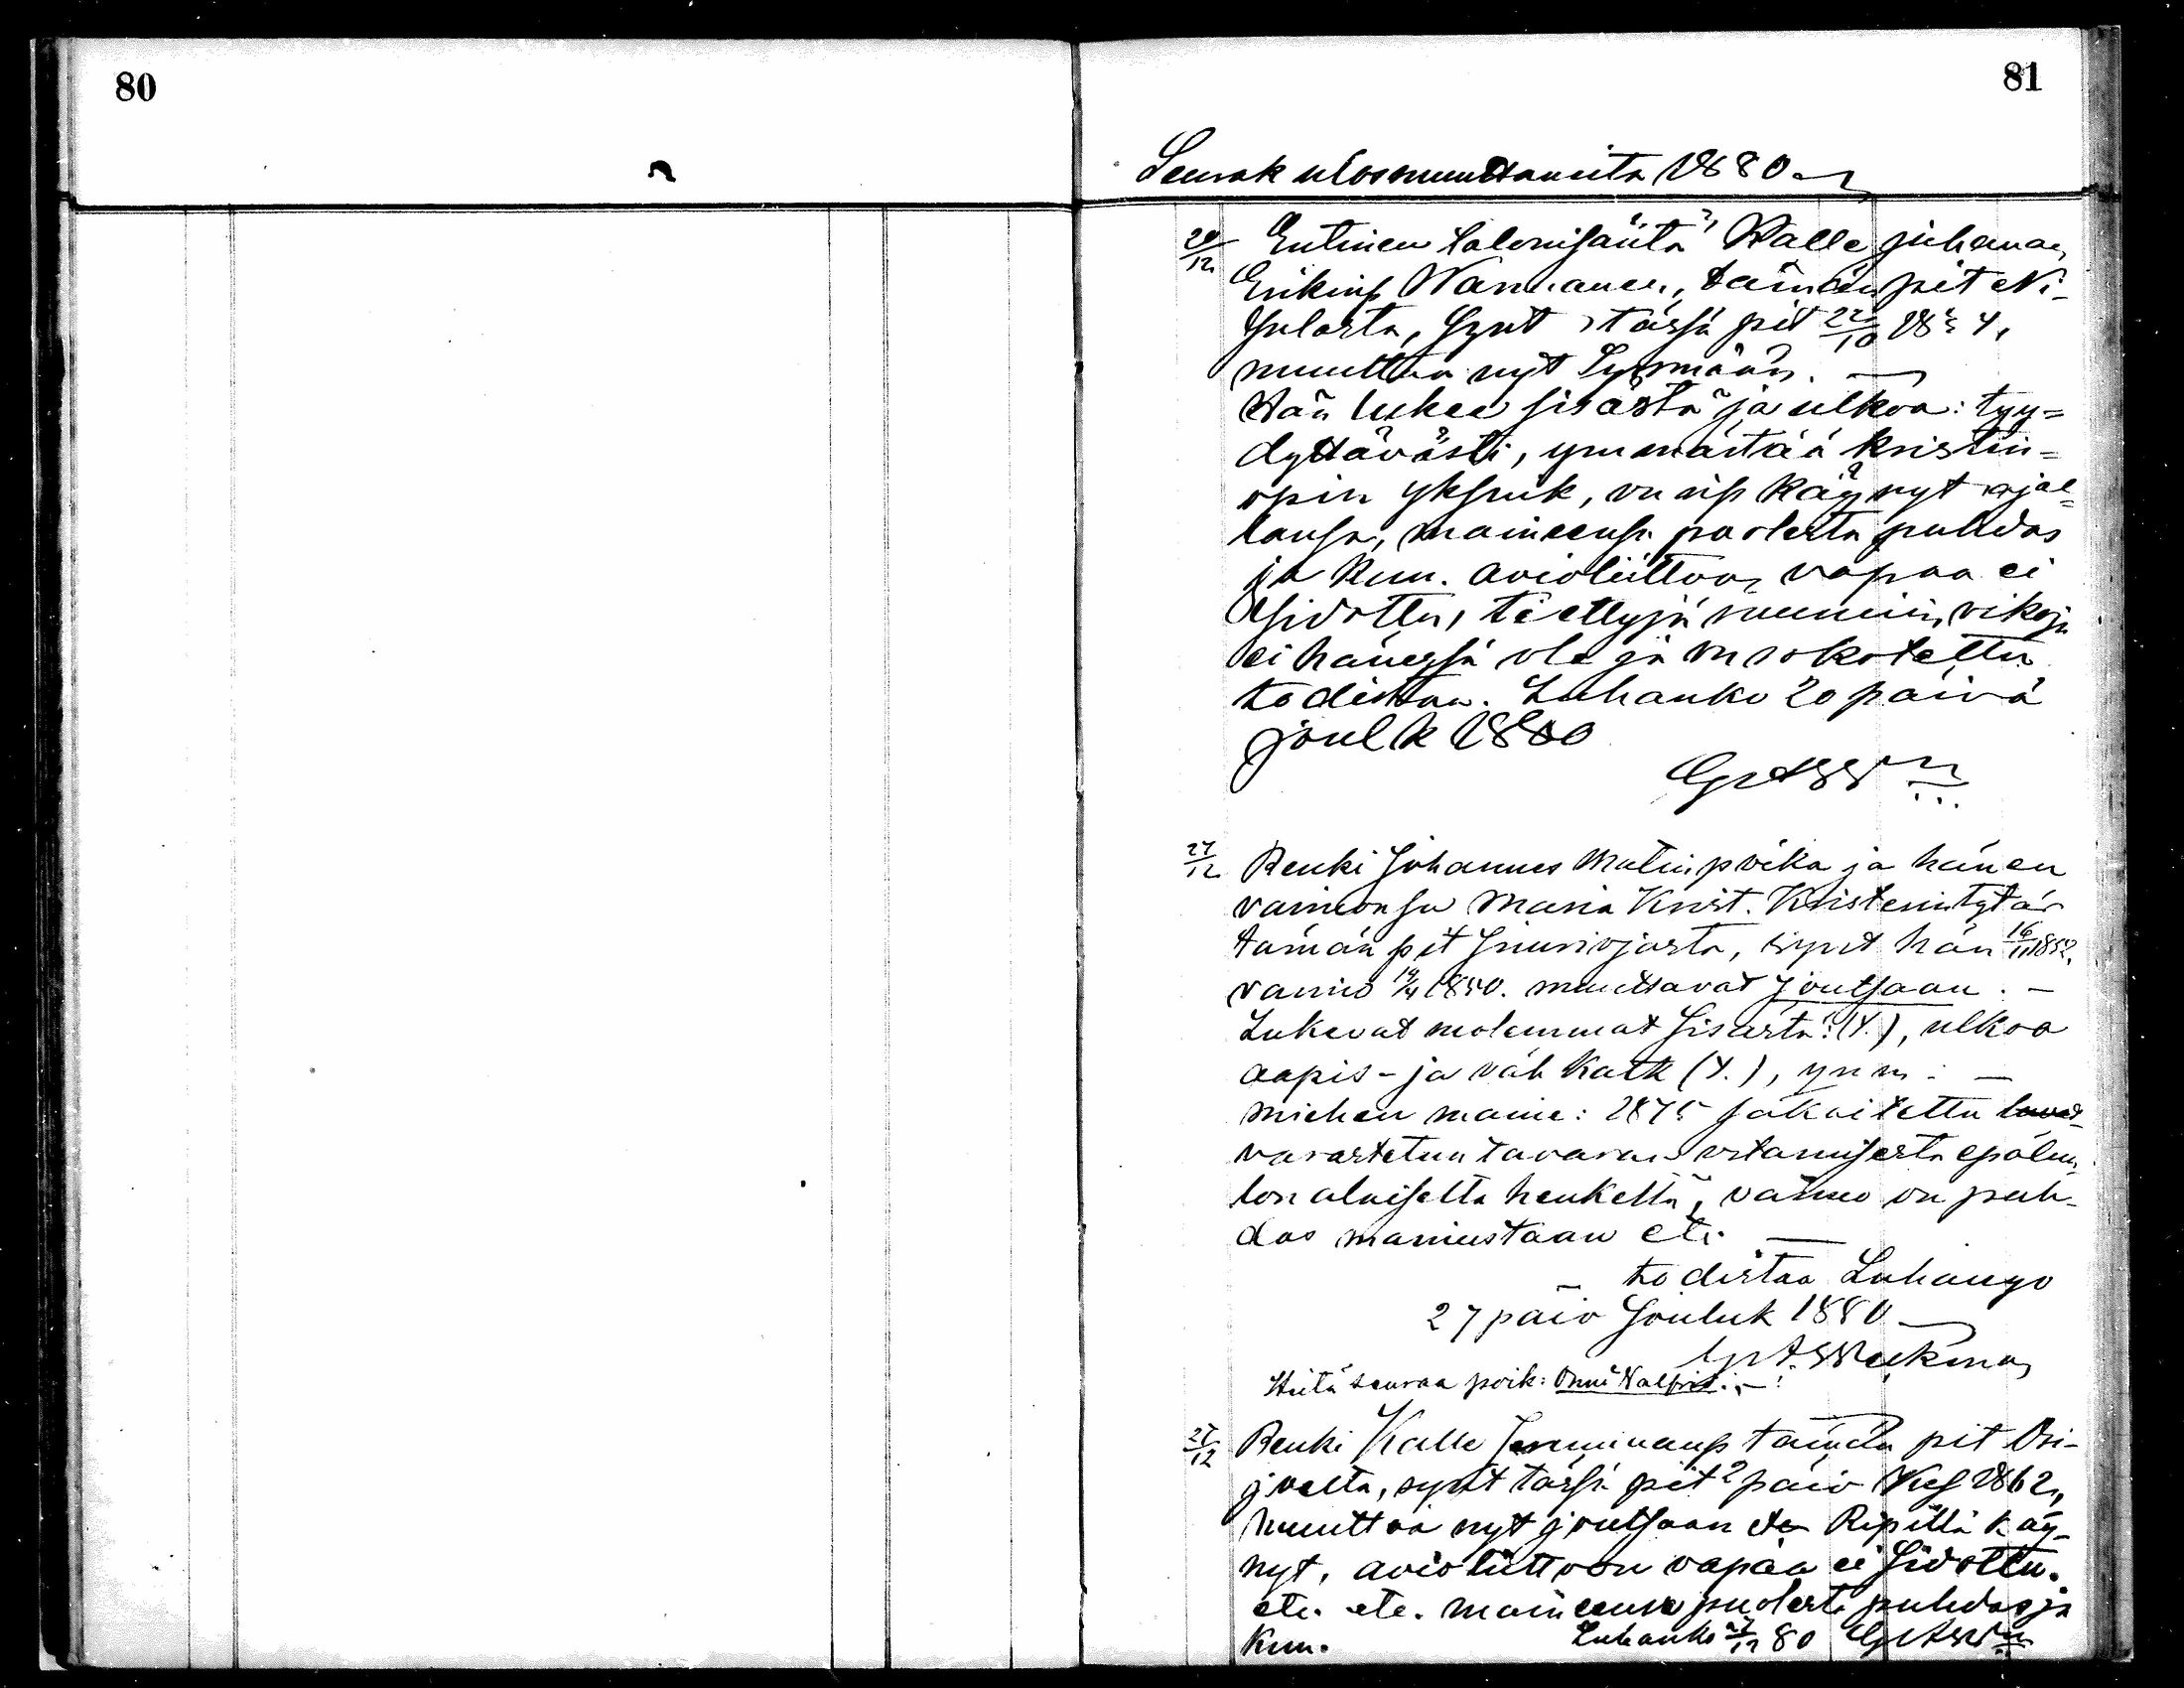 80
81
Seurak ulosmuuttaneita 1880
20/12 Entinen talonisäntä Kalle Juhana
Erikinp Wanhanen, tämän pit Ni-
sulasta, synt tässä pit 22/10
muuttaa nyt Sysmään. —
Hän lukee sisästä ja ulkoa: tyy=
dyttävästi, ymmärtää kristin=
opin yksink, on rip käynyt ajal=
lansa, maineensa puolesta puhdas
ja kun. avioliittoon vapaa ei
sidottu, tiettyjä ruumiin vikoja
ei hänessä ole ja on rokotettu
todistaa. Luhanko 20 päivä
joulk 1880
27/12 Renki Johannes Matinpoika ja hänen
vaimonsa Maria Krist. Kristerintytär
tämän pit, synt hän 16/11 1852,
vaimo 19/4 1850. muuttavat Joutsaan. —
Lukevat molemmat sisästä: (T.), ulkoa
aapis- ja väh Katk (T.), ymm: —
miehen maine: 1875 sakoitettu
varastetun tavaran ostamisesta epäluu-
lon alaiselta henkeltä, vaimo on puh-
das maineestaan etc. —
— todistaa Luhango
27 päiv Jouluk 1880
Heitä seuraa poik: Onni Nalfrid. —
27/12 Renki Kalle tämän pit Osi-
joelta, synt tässä pit 2 päiv Kes 1862,
muuttaa nyt Joutsaan Ripillä käy-
nyt, avioliittoon vapaa ei sidottu.
etc. etc. maineensa puolesta puhdas ja
kun. Luhanko 27/12 80